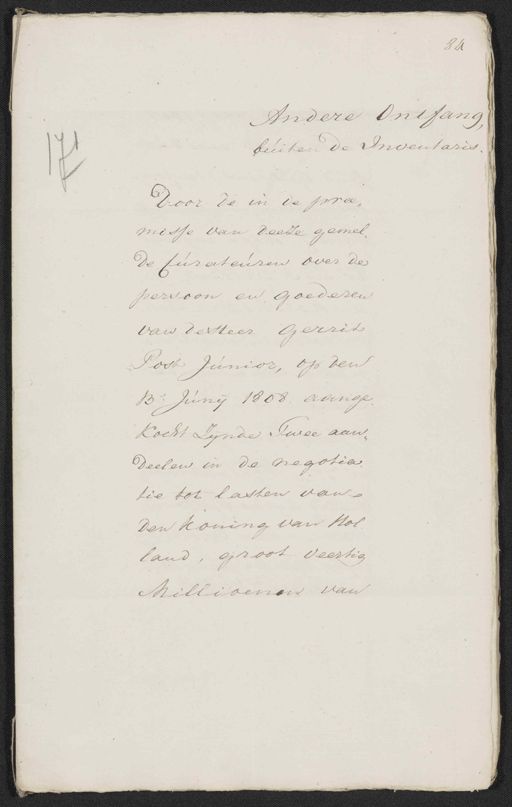 84
Andere Ontfang,
búiten de Inventaris.
171
Door de in de præ,
misse van deeze gemel,
de Cúrateúren over de
persoon en goederen
van de Heer Gerrit
Post Júnior, op den
13: Júnÿ 1808. aange
kocht zÿnde Twee aan,
deelen in de negotia
tie tot lasten van
den koning van Hol
land, groot veertig
Millioenen van